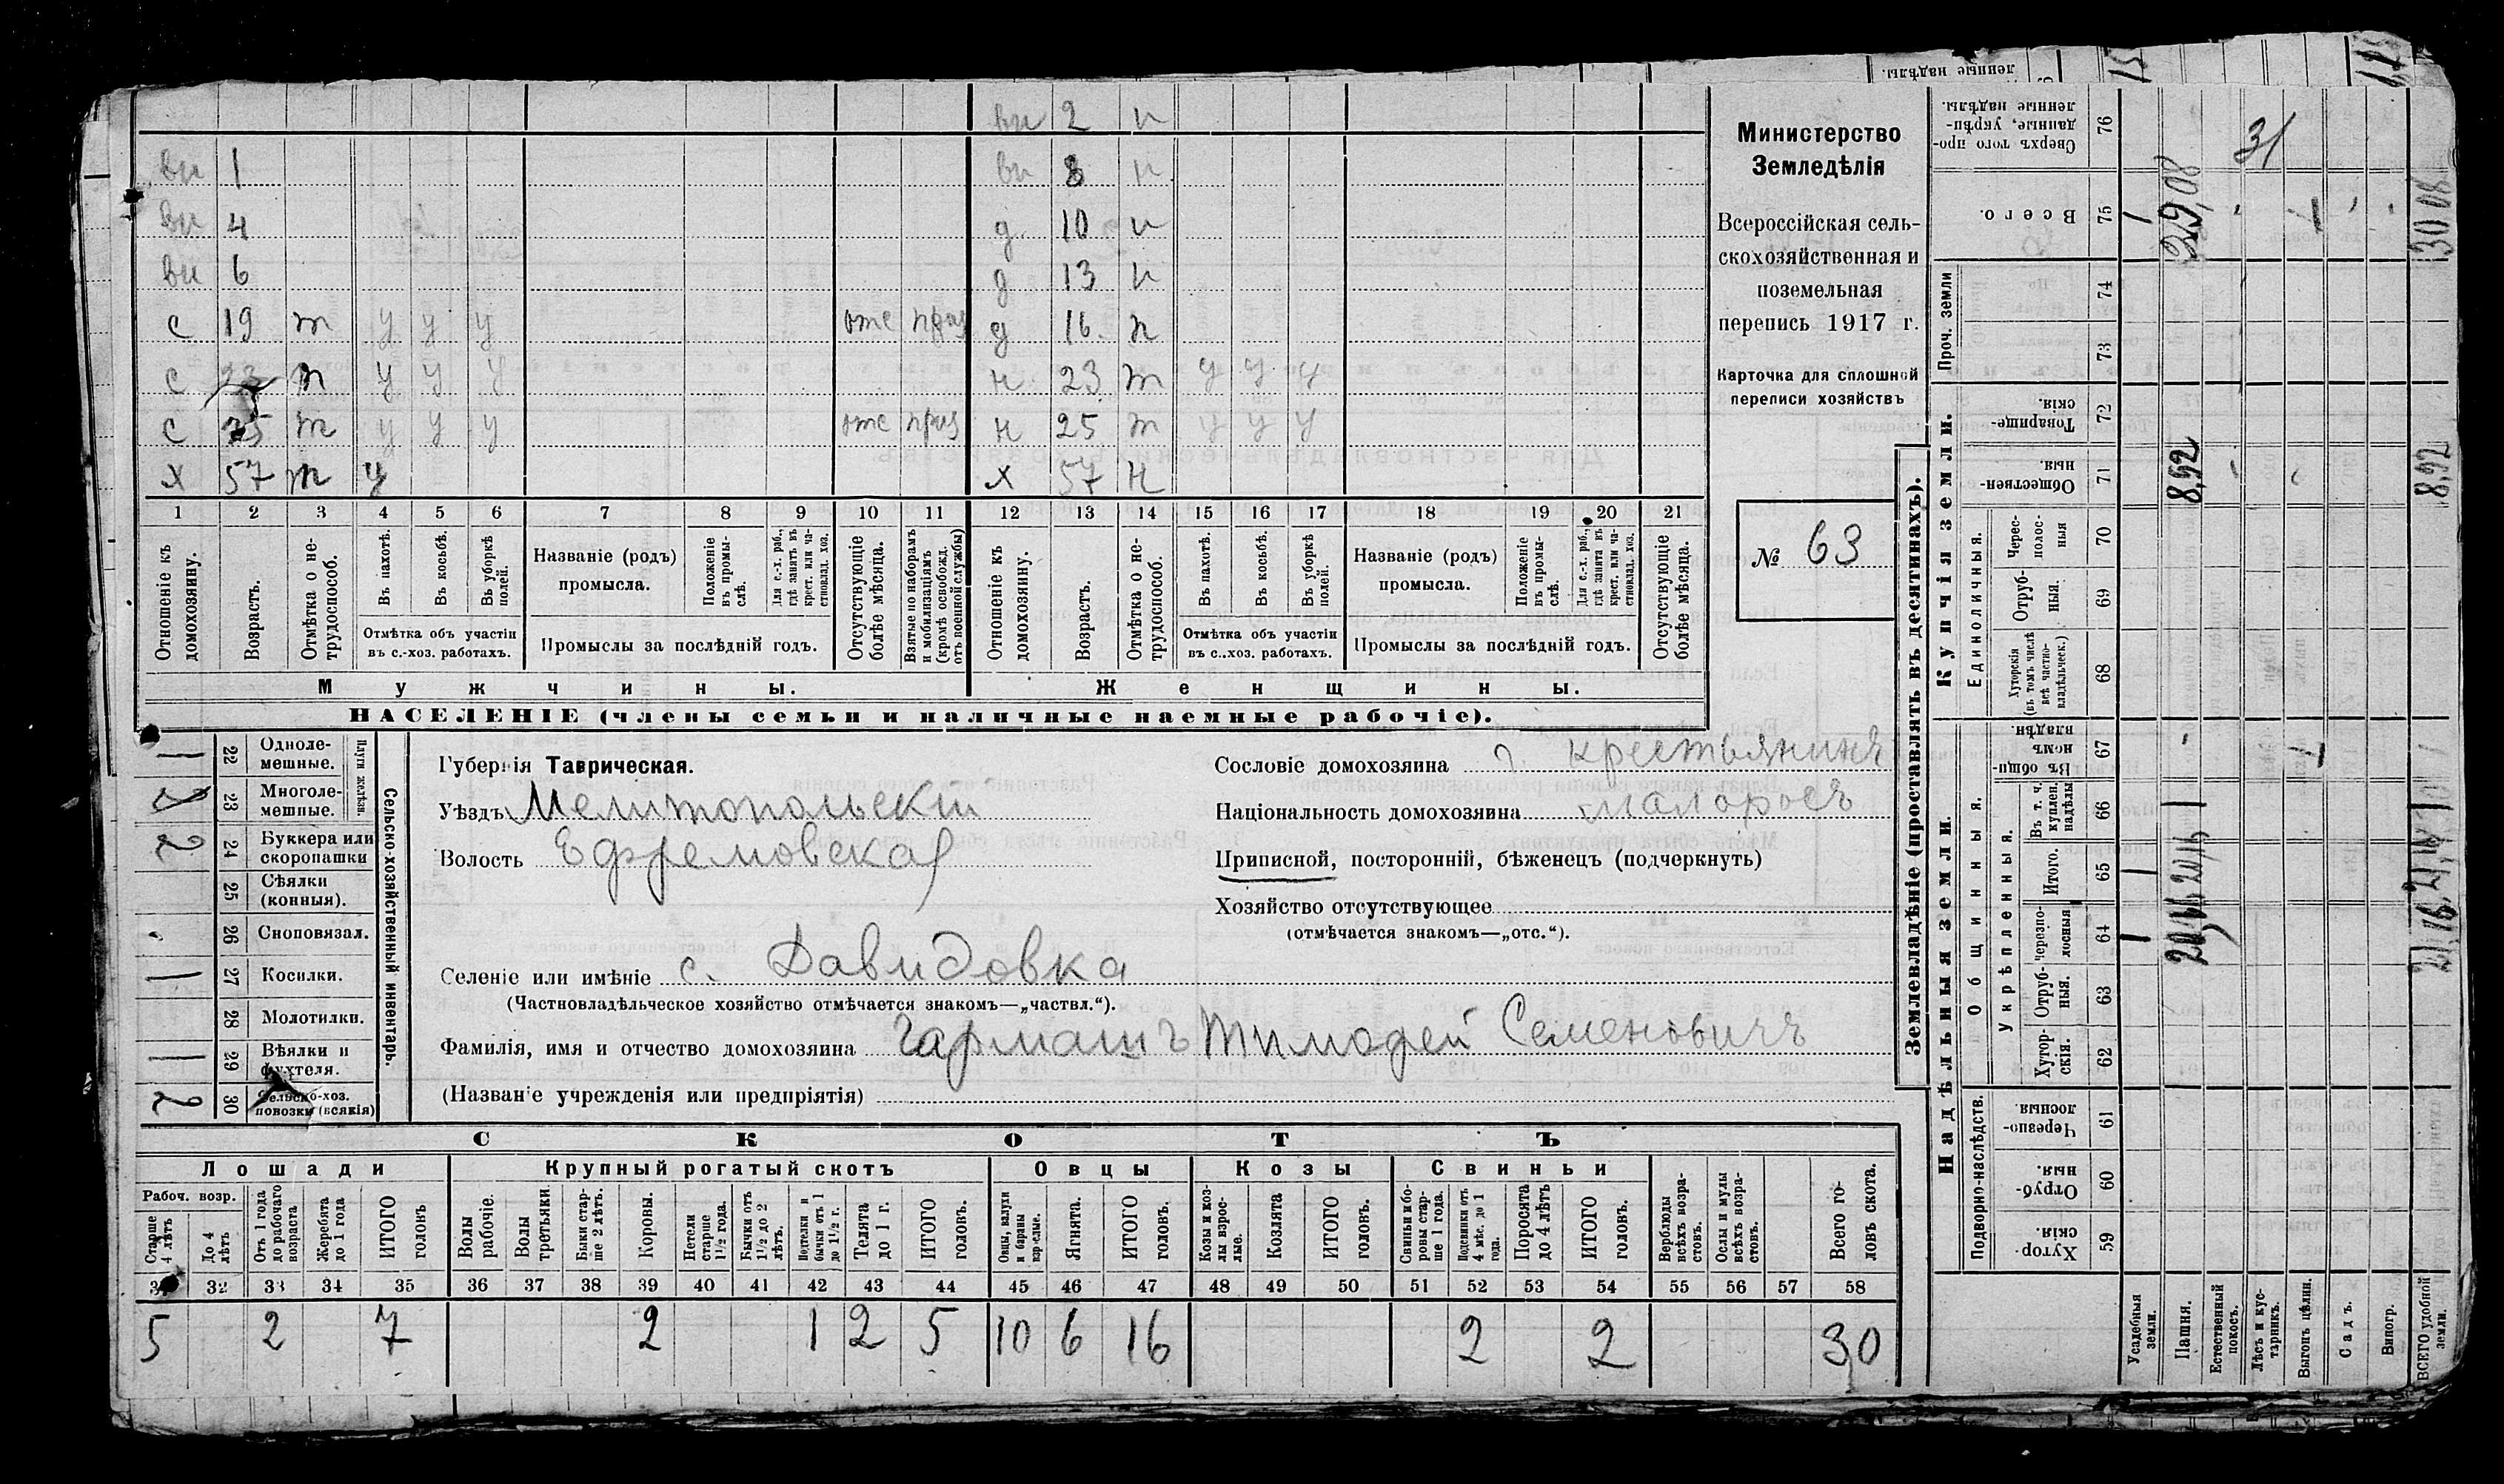 ви 2 н
ви 1 ви 8 н
ви 4 д 10 н
ви 6 д 13 н
с 19 т у у у отс приз д 16 н
с 23 т у у у н 23 т у у у
с т у у у отс приз н 25 т у у у
х 57 т у х 57 н
1 2 3 4 5 6 7 8 9 10 11 12 13 14 15 16 17 18 19 20 21
Отношеніе къ домохозяину.
Возрастъ.
Отмѣтка о нетрудоспособ.
Въ пахотѣ.
Въ косьбѣ.
Въ уборкѣ полей.
Отмѣтка объ участіи въ с.-хоз. работахъ.
Названіе (родъ) промысла.
Положеніе въ промыслѣ.
Для с.-х. раб., гдѣ занятъ въ крест. или частновлад. хоз.
Промыслы за послѣдній годъ.
Отсутствующіе болѣе мѣсяца.
Взятые по наборамъ и мобилизаціямъ (кромѣ освобожд. отъ военной службы)
Отношеніе къ домохозяину.
Возрастъ.
Отмѣтка о нетрудоспособ.
Въ пахотѣ.
Въ косьбѣ.
Въ уборкѣ полей.
Отмѣтка объ участіи въ с..хоз. работахъ.
Названіе (родъ) промысла.
Положеніе въ промыслѣ.
Для с.-х. раб., гдѣ занята въ крест. или частновлад. хоз.
Промыслы за послѣдній годъ.
Отсутствующіе болѣе мѣсяца.
Мужчины. Женщины.
НАСЕЛЕНІЕ (члены семьи и наличные наемные рабочіе).
Министерство
Земледѣлія
Всероссійская сель-
скохозяйственная и
поземельная
перепись 1917 г.
Карточка для сплошной
переписи хозяйствъ
№ 63
Сельско-хозяйственный инвентарь.
Плуги желѣзн.
1 22 Однолемешные.
23 Многолемешные.
2 24 Буккера или скоропашки
25 Сѣялки (конныя).
26 Сноповязал.
1 27 Косилки.
28 Молотилки.
1 29 Вѣялки и фухтеля.
2 30 Сельско-хоз. повозки (всякія)
Губернія Таврическая.
Уѣздъ Мелитопольскій
Волость Ефремовская
Селеніе или имѣніе с. Давидовка
(Частновладѣльческое хозяйство отмѣчается знакомъ—„частвл.“).
Фамилія, имя и отчество домохозяина Гармашъ Тимофей Семеновичъ
(Названіе учрежденія или предпріятія)
Сословіе домохозяина крестьянинъ
Національность домохозяина малоросъ
Приписной, посторонній, бѣженецъ (подчеркнуть)
Хозяйство отсутствующее
(отмѣчается знакомъ—„отс.“).
СКОТЪ
Лошади Крупный рогатый скотъ Овцы Козы Свиньи
Рабоч. возр.
Старше 4 лѣтъ
До 4 лѣтъ
Отъ 1 года до рабочаго возраста
Жеребята до 1 года
ИТОГО головъ
Волы рабочіе.
Волы третьяки.
Быки старше 2 лѣтъ.
Коровы.
Нетели старше 1½ года.
Бычки отъ 1½ до 2 лѣтъ.
Подтелки и бычки отъ 1 до 1½ г.
Телята до 1 г.
ИТОГО головъ.
Овцы, валухи и бараны взрослые.
Ягнята.
ИТОГО головъ.
Козы и козлы взрослые.
Козлята
ИТОГО головъ.
Свиньи боровы старше 1 года.
Подсвинки отъ 4 мѣс. до 1 года.
Поросята до 4 лѣтъ
ИТОГО головъ.
Верблюды всѣхъ возрастовъ.
Ослы и мулы всѣхъ возрастовъ.
Всего головъ скота.
32 33 34 35 36 37 38 39 40 41 42 43 44 45 46 47 48 49 50 51 52 53 54 55 56 57 58
5 2 7 2 1 2 5 10 6 16 2 2 30
Землевладѣніе (проставлять въ десятинахъ).
Надѣльныя земли. Купчія земли.
Подворно-наслѣдств.
Общинныя.
Укрѣпленныя.
Единоличныя.
Проч. земли
59 Хуторскія.
60 Отрубныя.
61 Черезполосныя.
62 Хуторскія.
63 Отрубныя.
64 Черезполосныя
65 Итого.
66 Въ т. ч. куплен. надѣлы
67 Въ общиномъ владѣн.
68 Хуторскія (въ томъ числѣ всѣ частновладѣльческ.)
69 Отрубныя
70 Черес-полосныя
71 Общественныя.
72 Товарищескія.
73
74
75 Всего.
76 Сверхъ того проданные, укрѣпленные надѣлы.
Усадебныя земли.
Пашня.
Естественный покосъ.
Лѣсъ и кустарникъ.
Выгонъ цѣлин.
Садъ.
Виногр.
ВСЕГО удобной земли.
8,92
8,92
31
ленные надѣлы.